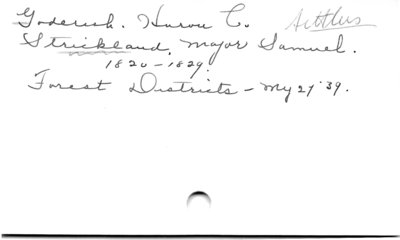 Goderich. Huron C. Settlers
Strickland, Major Samuel.
1820-1829.
Forest Districts - My 27 '39.